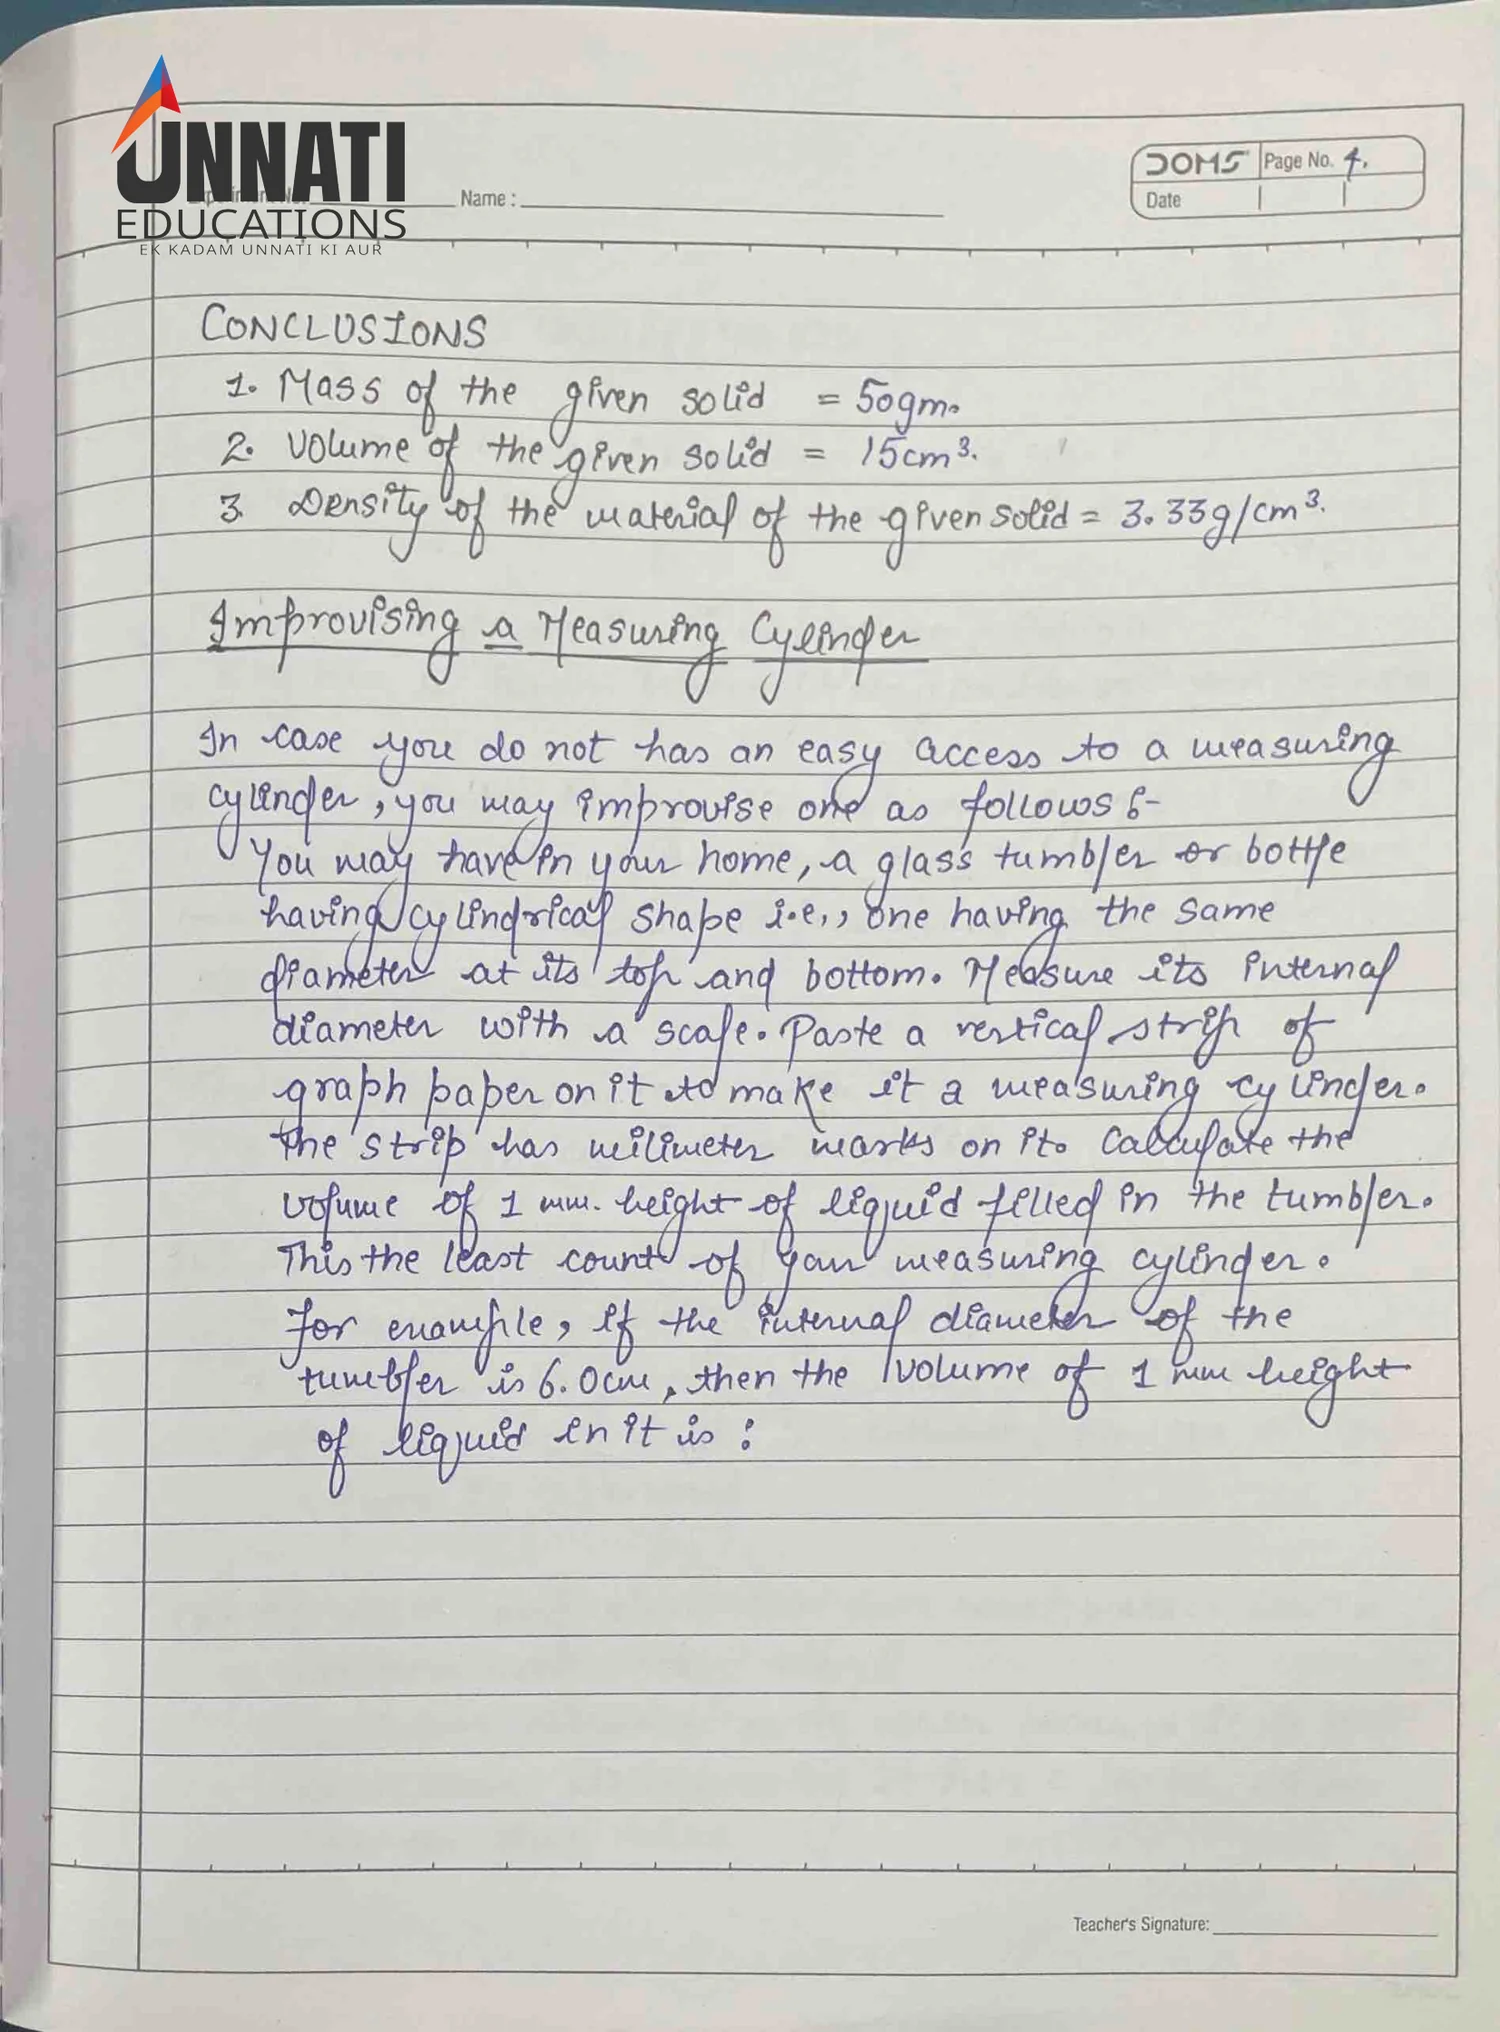 UNNATI
EDUCATIONS
EK KADAM UNNATI KI AUR
Name :
DOMS Page No. 4.
Date
CONCLUSIONS
1. Mass of the given solid = 50gm.
2. Volume of the given solid = 15cm³.
3. Density of the material of the given solid = 3.33g/cm³.
Improvising a Measuring Cylinder
In case you do not has an easy access to a measuring
cylinder, you may improvise one as follows :-
You may have in your home, a glass tumbler or bottle
having cylindrical shape i.e., one having the same
diameter at its top and bottom. Measure its internal
diameter with a scale. Paste a vertical strip of
graph paper on it to make it a measuring cylinder.
The strip has milimeter marks on it. Calculate the
volume of 1 mm. height of liquid filled in the tumbler.
This the least count of your measuring cylinder.
For example, if the internal diameter of the
tumbler is 6.0cm, then the volume of 1 mm height
of liquid in it is :
Teacher's Signature: